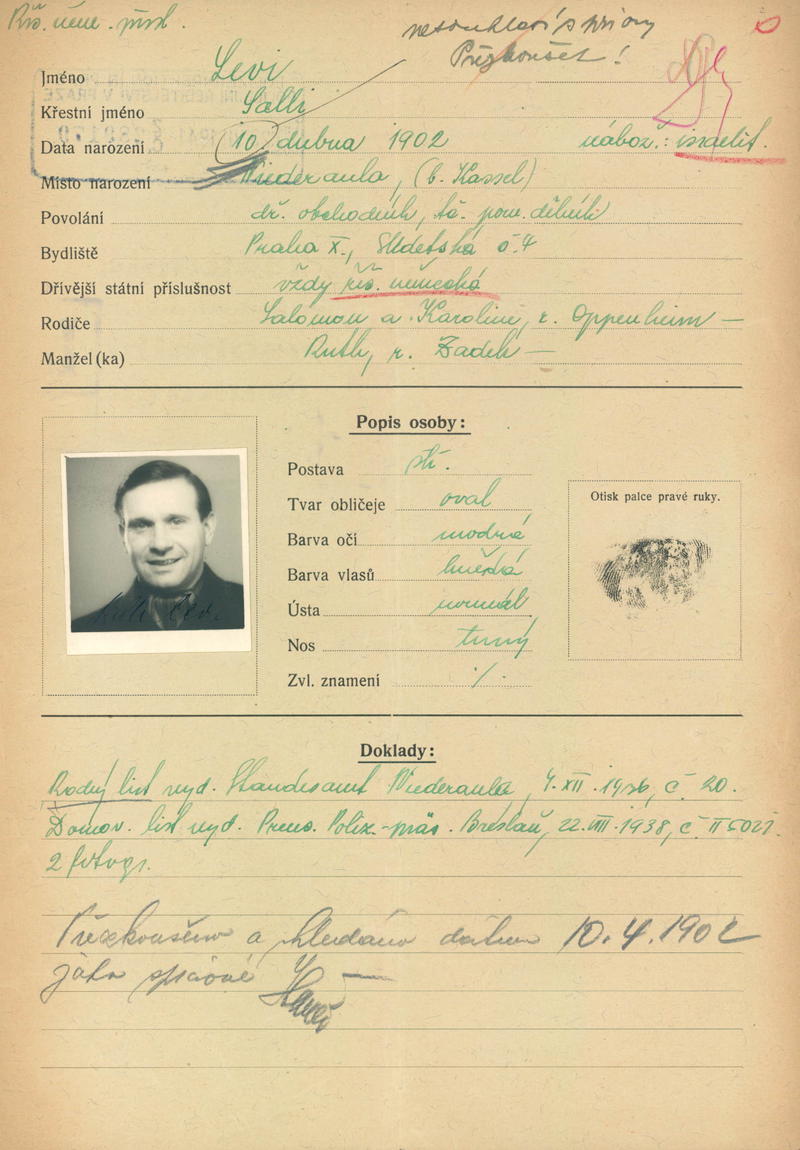 Říš. něm. přísl.
nesouhlasí s
Přezkoušet!
Jméno Levi
Křestní jméno Salli
Data narození (10) dubna 1902 nábož.: israelit.
Místo narození Niederaula, (b. Kassel)
Povolání dř. obchodník, tč. pom. dělník
Bydliště Praha X., Sudetská č. 4
Dřívější státní příslušnost vždy říš. německá
Rodiče Salomon a Karoline, r. Oppenheim —
Manžel (ka) Ruth, r. Zadek —
Popis osoby:
Postava stř.
Tvar obličeje oval
Barva očí modrá
Barva vlasů hnědá
Ústa normál
Nos
Zvl. znamení ./.
Otisk palce pravé ruky.
Salli Levi
Doklady:
Rodný list vyd. Standesamt Niederaula, 4. XII. 1936, č. 20.
Domov. list vyd. Preus. Poliz.-präs. Breslau, 22. VIII. 1938, č.
2 fotogr.
Přezkoušeno a hledáno datum 10.4.1902
jako správné